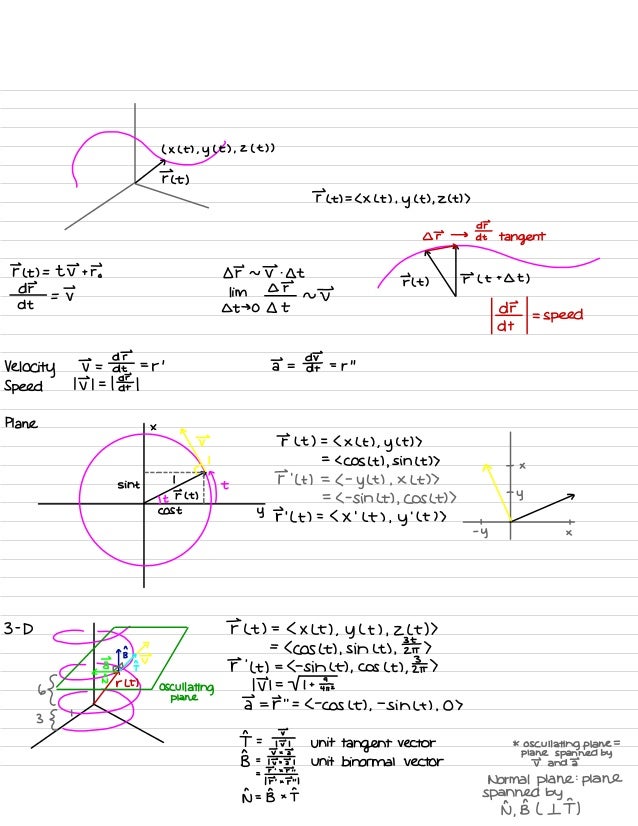 (x(t), y(t), z(t))
r⃗(t)
r⃗(t)=<x(t), y(t), z(t)>
Δr⃗ → dr⃗/dt tangent
r⃗(t)
r⃗(t+Δt)
|dr⃗/dt| = speed
r⃗(t) = tv⃗ + r⃗₀
dr⃗/dt = v⃗
Δr⃗ ~ v⃗·Δt
lim Δt→0 Δr⃗/Δt ~ v⃗
Velocity v⃗ = dr⃗/dt = r'
Speed |v⃗| = |dr⃗/dt|
a⃗ = dv⃗/dt = r"
Plane
x
v⃗
sint
1
r⃗(t)
t
t
cost
y
r⃗(t) = <x(t), y(t)>
= <cos(t), sin(t)>
r⃗'(t) = <-y(t), x(t)>
= <-sin(t), cos(t)>
r⃗'(t) = <x'(t), y'(t)>
x
y
-y
x
3-D
B̂
T̂
v⃗
r(t)
6
3
1
oscullating
plane
r⃗(t) = <x(t), y(t), z(t)>
= <cos(t), sin(t), 3t/2π>
r⃗'(t) = <-sin(t), cos(t), 3/2π>
|v⃗| = √(1 + 9/4π²)
a⃗ = r⃗" = <-cos(t), -sin(t), 0>
T̂ = v⃗/|v⃗| unit tangent vector
B̂ = v⃗×a⃗/|v⃗×a⃗| unit binormal vector
= r⃗'×r⃗"/|r⃗'×r⃗"|
N̂ = B̂ × T̂
* oscullating plane =
plane spanned by
v⃗ and a⃗
Normal plane: plane
spanned by
N̂, B̂ (⊥T̂)